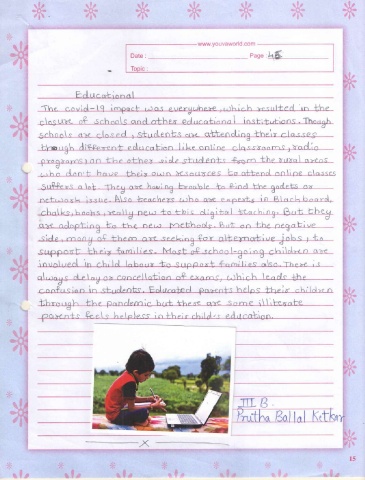 www.youvaworld.com
Date :
Page 45
Topic :
Educational
The covid-19 impact was everywhere, which resulted in the
closure of schools and other educational institutions. Though
schools are closed, students are attending their classes
through different education like online classrooms, radio
programs; on the other side students from the rural areas
who don't have their own resources to attend online classes
suffers a lot. They are having trouble to find the gadets or
network issue. Also teachers who are experts in Blackboard,
chalks, books, really new to this digital teaching. But they
are adopting to the new methods. But on the negative
side, many of them are seeking for alternative jobs, to
support their families. Most of school-going children are
involved in child labour to support families also. There is
always delay or concellation of exams, which leads the
confusion in students. Educated parents helps their children
through the pandemic but there are some illiterate
parents feels helpless in their childs education.
III B.
Prutha Ballal Ketkar
x
15